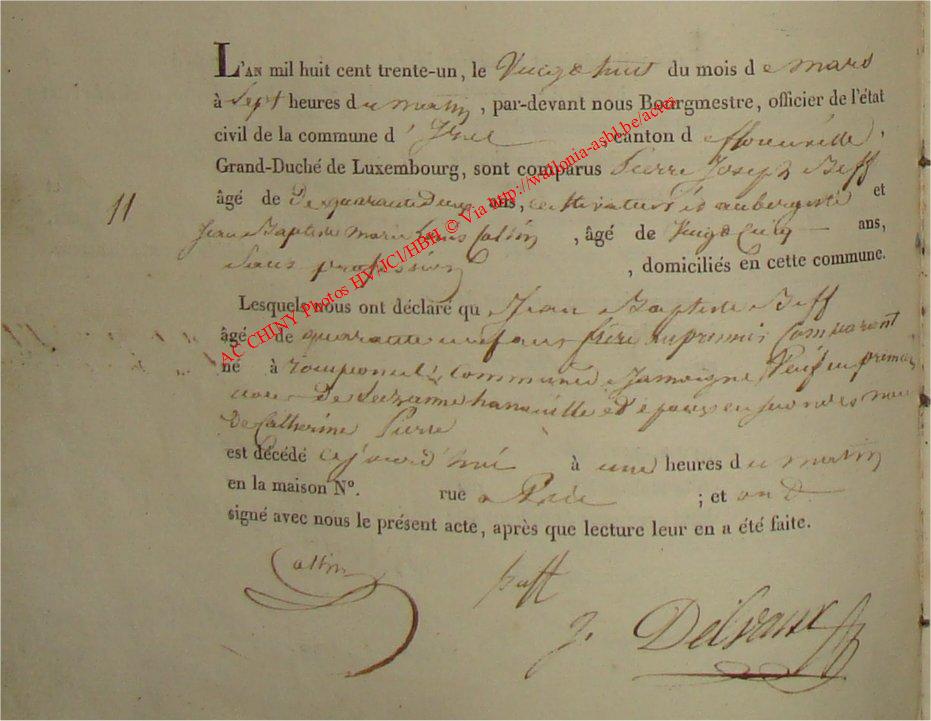 L'AN mil huit cent trente-un, le Vingt huit du mois de mars
à Sept heures du matin, par-devant nous Bourgmestre, officier de l'état
civil de la commune d' Izel, canton de florenville,
Grand-Duché de Luxembourg, sont comparus Pierre Joseph Beff
11
âgé de De quarante Deux ans, cultivateur et aubergiste et
Jean Baptiste Marie Louis Collin, âgé de Vingt Cinq ans,
Sans profession, domiciliés en cette commune.
Lesquels nous ont déclaré qu Jean Baptiste Beff
âgé de quarante neuf ans frère au premier Comparant
né à romponcel, Commune de Jamoigne, Veuf en premier
noce de Suzanne hanneuille et époux en secondes noces
de Catherine Pierre
est décédé cejourd'hui à une heures du matin
en la maison N°. rue a ; et ont
signé avec nous le présent acte, après que lecture leur en a été faite.
Collin
Beff
J. Delvaux
AC CHINY Photos HV/JCl/HBH © Via http://wallonia-asbl.be/actes